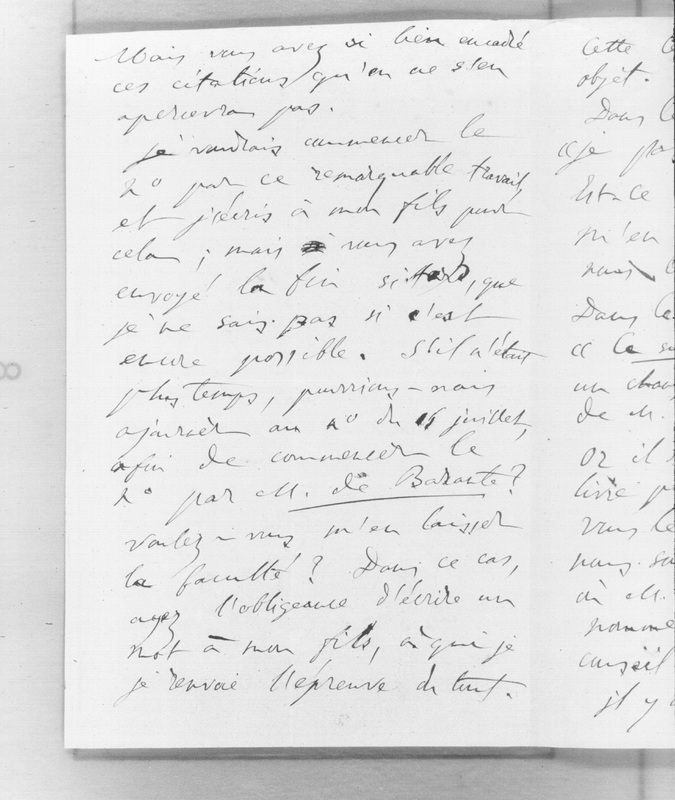 Mais vous avez si bien encadré
ces citations qu'on ne s'en
apercevra pas.
je voudrais commencer le
no par ce remarquable travail,
et j'écris à mon fils pour
cela ; mais vous avez
envoyé la fin si tard, que
je ne sais pas si c'est
encore possible. S'il n'était
plus temps, pourrions-nous
ajourner au no du 15 juillet,
afin de commencer le
no par M. de Barante?
voulez-vous m'en laisser
la faculté? Dans ce cas,
ayez l'obligeance d'écrire un
mot à mon fils, à qui je
je renvoie l'épreuve du tout.
Cette
objet.
Dans
Est-ce
m'en
nous
Dans le
un
de M.
or il
livre
vous
nous
où M.
nommé
conseil
il y